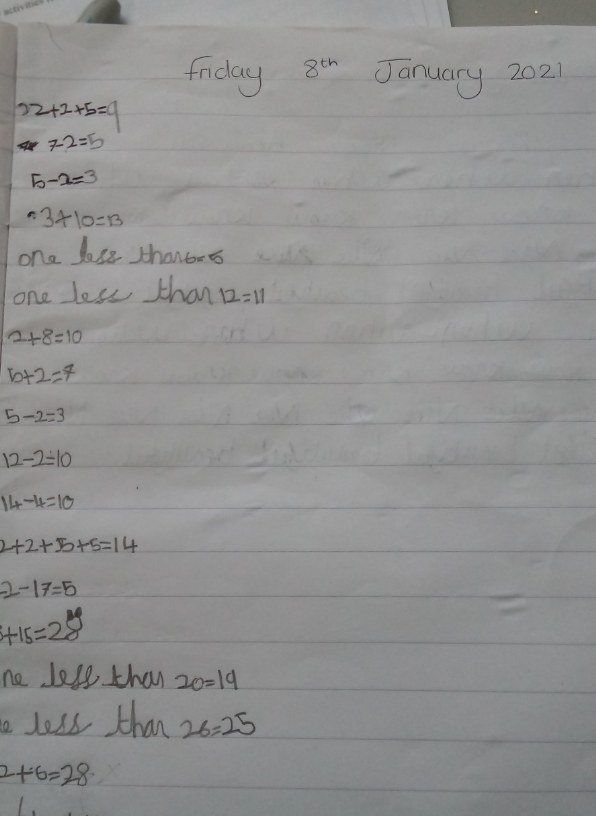 activities
Friday 8th January 2021
2+2+5=9
7-2=5
5-2=3
3+10=13
one less than 6=5
one less than 12=11
2+8=10
5+2=7
5-2=3
12-2=10
14-4=10
2+2+5+5=14
2-17=5
+15=28
ne less than 20=19
e less than 26=25
2+6=28